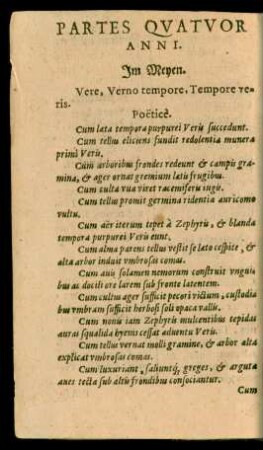 PARTES QVATVOR
ANNI.
Jm Meyen.
Vere, Verno tempore, Tempore ve-
ris.
Poëticè.
Cum lata tempora purpurei Veris succedunt.
Cum tellus eliciens fundit redolentia munera
primi Veris.
Cùm arboribus frondes redeunt & campis gra-
mina, & ager ornat gremium latis frugibus.
Cum culta vua viret racemiferis iugis.
Cum tellus promit germina ridentia auricomo
vultu.
Cum aër iterum tepet à Zephyris, & blanda
tempora purpurei Veris eunt.
Cum alma parens tellus vestit se lato cespite, &
alta arbor induit vmbrosas comas.
Cum auis solamen nemorum construit vngui
bus ac docili ore larem sub fronte latentem.
Cum cultus ager sufficit pecori victum, custodia
bus vmbram sufficit herbosi soli opaca vallis.
Cum nouis iam Zephyris mulcentibus tepidas
auras squalida hyems cessat aduentu Veris.
Cum tellus vernat molli gramine, & arbor alta
explicat vmbrosas comas.
Cum luxuriant, saliuntq; greges, & arguta
aues tecta sub altis frondibus consociantur.
Cum